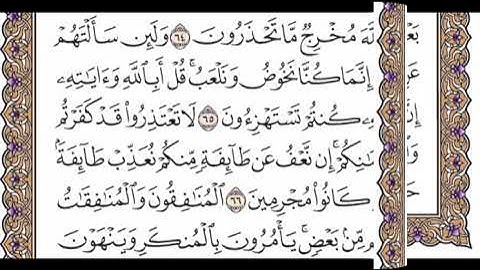 مُخْرِجٌ مَّا تَحْذَرُونَ ٦٤ وَلَئِن سَأَلْتَهُمْ
إِنَّمَا كُنَّا نَخُوضُ وَنَلْعَبُ ۚ قُلْ أَبِٱللَّهِ وَءَايَـٰتِهِۦ
كُنتُمْ تَسْتَهْزِءُونَ ٦٥ لَا تَعْتَذِرُوا۟ قَدْ كَفَرْتُم
إِن نَّعْفُ عَن طَآئِفَةٍ مِّنكُمْ نُعَذِّبْ طَآئِفَةًۢ
كَانُوا۟ مُجْرِمِينَ ٦٦ ٱلْمُنَـٰفِقُونَ وَٱلْمُنَـٰفِقَـٰتُ
مِّنۢ بَعْضٍ ۚ يَأْمُرُونَ بِٱلْمُنكَرِ وَيَنْهَوْنَ